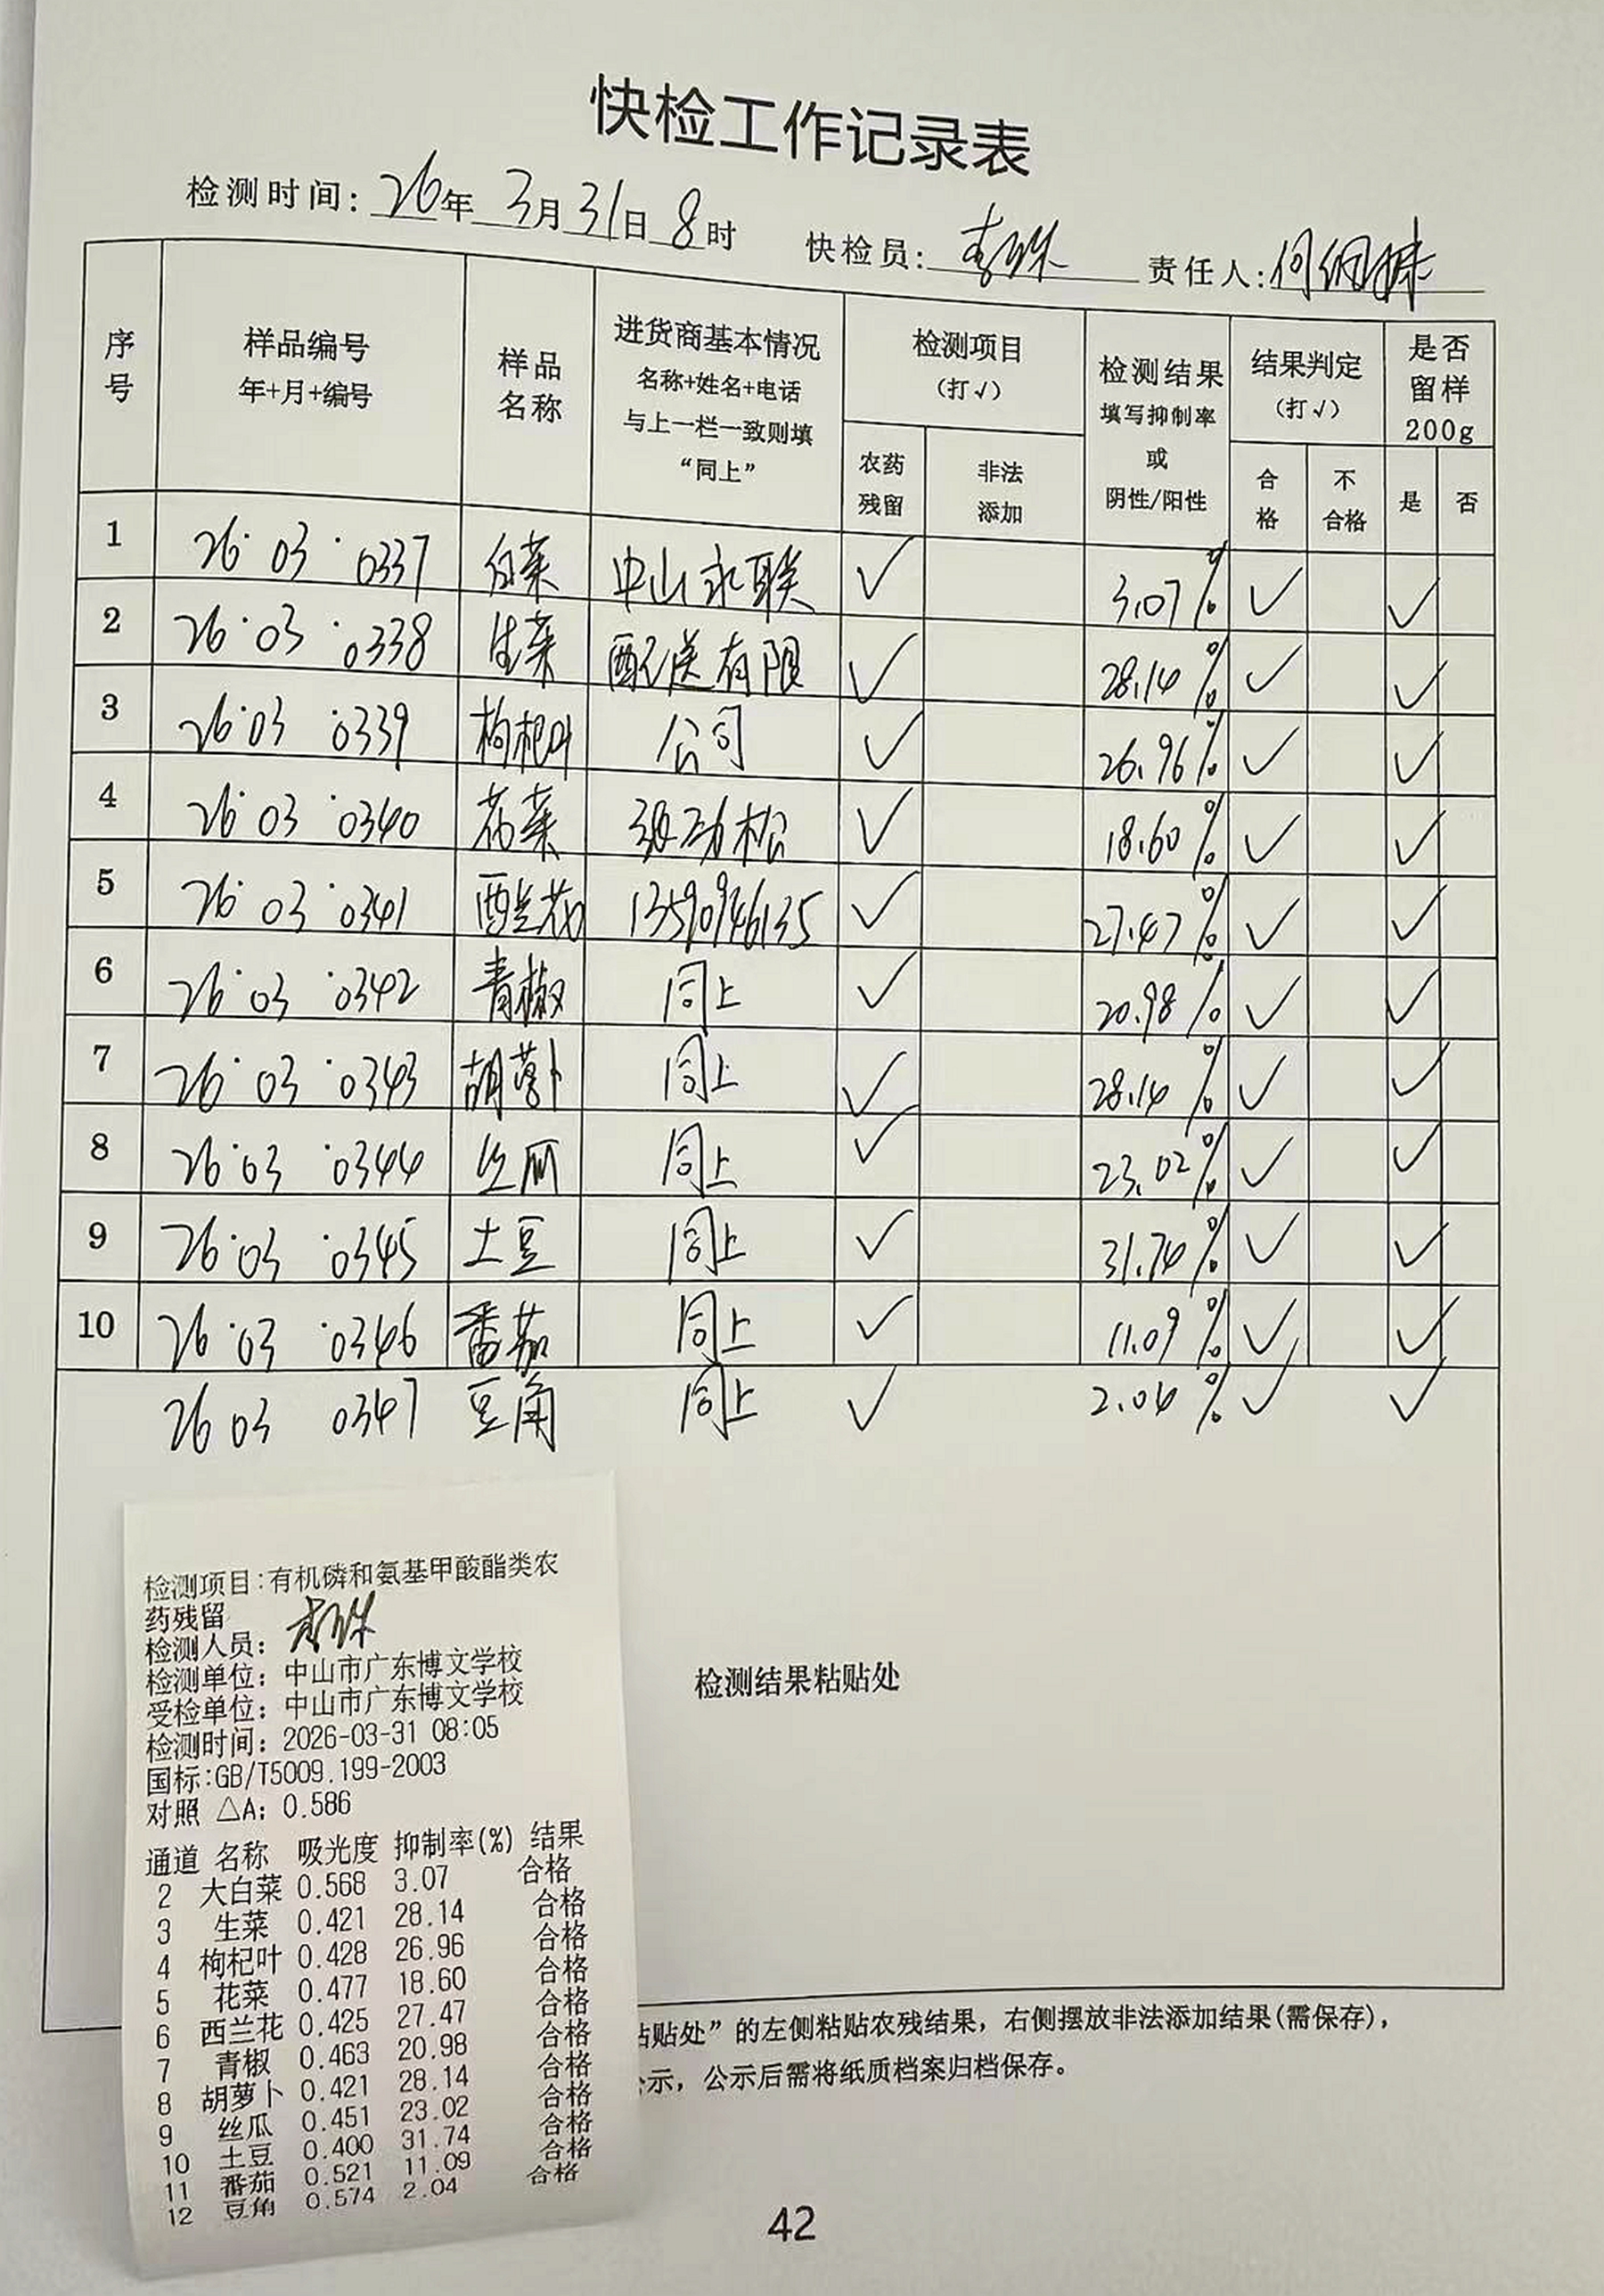 快检工作记录表
检测时间: 26年 3月31日 8时 快检员: 责任人:
序号 样品编号 年+月+编号 样品名称 进货商基本情况 名称+姓名+电话 与上一栏一致则填“同上” 检测项目 (打√) 农药残留 非法添加 检测结果 填写抑制率 或 阴性/阳性 结果判定 (打√) 合格 不合格 是否留样 200g 是 否
1 26·03·0337 白菜 中山永联 √ 3.07% √ √
2 26·03·0338 生菜 配送有限 √ 28.14% √ √
3 26·03·0339 枸杞叶 公司 √ 26.96% √ √
4 26·03·0340 花菜 劲松 √ 18.60% √ √
5 26·03·0341 西兰花 √ 27.47% √ √
6 26·03·0342 青椒 同上 √ 20.98% √ √
7 26·03·0343 胡萝卜 同上 √ 28.14% √ √
8 26·03·0344 丝瓜 同上 √ 23.02% √ √
9 26·03·0345 土豆 同上 √ 31.74% √ √
10 26·03·0346 番茄 同上 √ 11.09% √ √
26 03 0347 豆角 同上 √ 2.04% √ √
检测结果粘贴处
检测项目:有机磷和氨基甲酸酯类农
药残留
检测人员:
检测单位: 中山市广东博文学校
受检单位: 中山市广东博文学校
检测时间: 2026-03-31 08:05
国标:GB/T5009.199-2003
对照 △A: 0.586
通道 名称 吸光度 抑制率(%) 结果
2 大白菜 0.568 3.07 合格
3 生菜 0.421 28.14 合格
4 枸杞叶 0.428 26.96 合格
5 花菜 0.477 18.60 合格
6 西兰花 0.425 27.47 合格
7 青椒 0.463 20.98 合格
8 胡萝卜 0.421 28.14 合格
9 丝瓜 0.451 23.02 合格
10 土豆 0.400 31.74 合格
11 番茄 0.521 11.09 合格
12 豆角 0.574 2.04 合格
粘贴处”的左侧粘贴农残结果，右侧摆放非法添加结果(需保存)，
公示，公示后需将纸质档案归档保存。
42